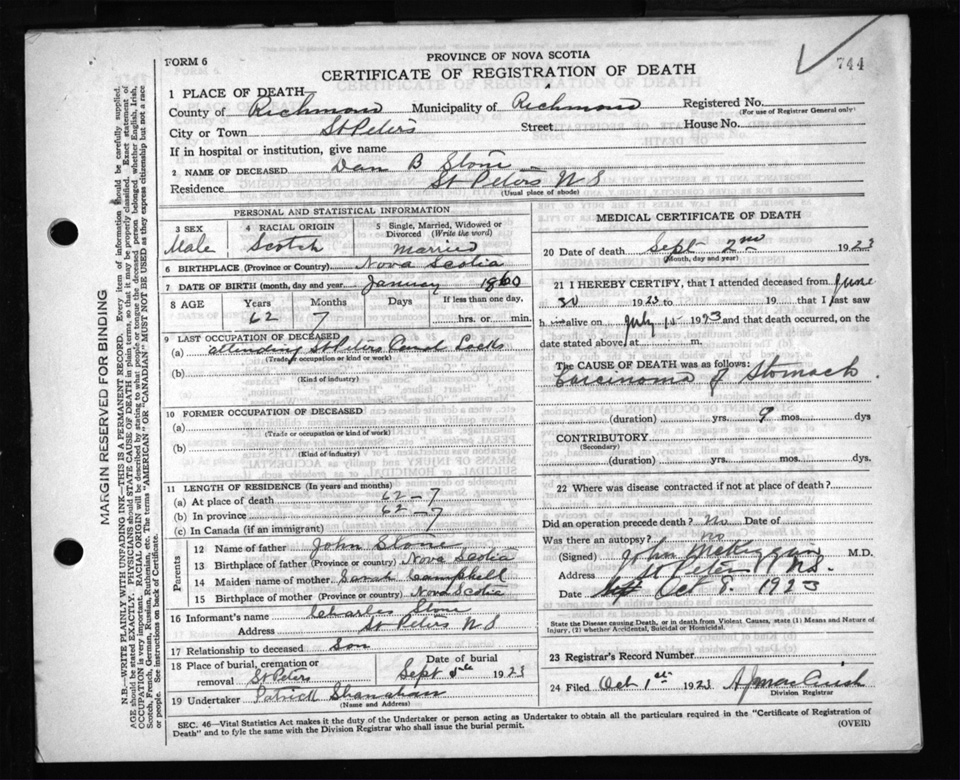 FORM 6
PROVINCE OF NOVA SCOTIA
CERTIFICATE OF REGISTRATION OF DEATH
744
1 PLACE OF DEATH
County of Richmond Municipality of Richmond Registered No.
(For use of Registrar General only)
City or Town St Peters Street House No.
If in hospital or institution, give name
2 NAME OF DECEASED Dan B Stone
Residence St Peters N S
(Usual place of abode)
PERSONAL AND STATISTICAL INFORMATION
3 SEX 4 RACIAL ORIGIN 5 Single, Married, Widowed or Divorced (Write the word)
Male Scotch Married
6 BIRTHPLACE (Province or Country) Nova Scotia
7 DATE OF BIRTH (month, day and year) January 1860
8 AGE Years Months Days If less than one day,
62 7 hrs. or min.
9 LAST OCCUPATION OF DECEASED
(a) attending St Peters Canal Locks
(Trade, occupation or kind of work)
(b)
(Kind of industry)
10 FORMER OCCUPATION OF DECEASED
(a)
(Trade, occupation or kind of work)
(b)
(Kind of industry)
11 LENGTH OF RESIDENCE (In years and months)
(a) At place of death 62 - 7
(b) In province 62 - 7
(c) In Canada (if an immigrant)
Parents
12 Name of father John Stone
13 Birthplace of father (Province or country) Nova Scotia
14 Maiden name of mother Sarah Campbell
15 Birthplace of mother (Province or country) Nova Scotia
16 Informant's name Charles Stone
Address St Peters N S
17 Relationship to deceased Son
18 Place of burial, cremation or removal St Peters Date of burial Sept 5th 1923
19 Undertaker Patrick Shanahan
(Name and Address)
MEDICAL CERTIFICATE OF DEATH
20 Date of death Sept 2nd 1923
(Month, day and year)
21 I HEREBY CERTIFY, that I attended deceased from June
30 1923 to 19 that I last saw
him alive on July 15 1923 and that death occurred, on the
date stated above, at m.
The CAUSE OF DEATH was as follows:
Carcinoma of Stomach
(duration) yrs. 9 mos. dys
CONTRIBUTORY
(Secondary)
(duration) yrs. mos. dys.
22 Where was disease contracted if not at place of death?
Did an operation precede death? No Date of
Was there an autopsy? No
(Signed) John M.D.
Address St Peters N.S.
Date Oct 8. 1923
State the Disease causing Death, or in death from Violent Causes, state (1) Means and Nature of
Injury, (2) whether Accidental, Suicidal or Homicidal.
23 Registrar's Record Number
24 Filed Oct 1st 1923
Division Registrar
SEC. 46—Vital Statistics Act makes it the duty of the Undertaker or person acting as Undertaker to obtain all the particulars required in the "Certificate of Registration of
Death" and to fyle the same with the Division Registrar who shall issue the burial permit. (OVER)
MARGIN RESERVED FOR BINDING
N.B.—WRITE PLAINLY WITH UNFADING INK—THIS IS A PERMANENT RECORD. Every item of information should be carefully supplied.
AGE should be stated EXACTLY. PHYSICIANS should STATE CAUSE OF DEATH in plain terms, so that it may be properly classified. Exact statement of
OCCUPATION is very important. RACIAL ORIGIN will be described by stating to what people or tongue the deceased person belonged whether English, Irish,
Scotch, French, German, Russian, Ruthenian, etc. The terms "AMERICAN" OR "CANADIAN" MUST NOT BE USED as they express citizenship but not a race
or people. See instructions on back of Certificate.